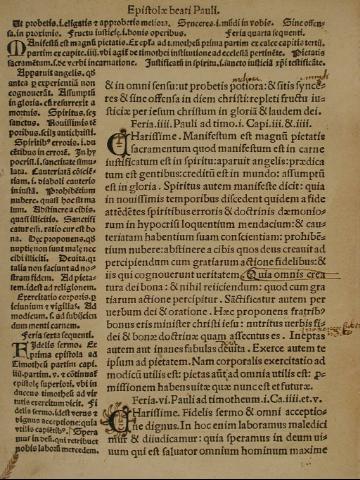 Epistolæ beati Pauli.
Ut probetis .i. eligatis & approbetis meliora. Synceres .i. mūdi in vobis. Sine offen-
sa, in proximo. Fructu iusticię .i. bonis operibus. Feria quarta sequenti.
Manifestū est magnū pietatis. Ex epła ad
sacramētum .i. de verbi incarnatione. Justificatū in spiritu
Apparuit angelis. qď
antea p experientiā non
cognouerāt. Assumptū
in gloria.
mortuis. Spiritus
Nouissimis tē
poribus. s. sub antichristi
erroris. i. a
In hy
pocrisi. i. sanctitate simu
lata. Cauteriatā
tiam. i. diaboli cauterio
inustā. Prohibētium
nubere. quasi hoc est ma
lum. Abstinere a cibis.
quasi illicitis. Sanctifi
catur est. ratio cur est bo
na. Hęc proponens. qď
nuptię non sunt malę nec
cibi illiciti. Deuita. qu
talia non faciunt ad no-
stram fidem. Ad pieta-
tem. idest ad religionem.
Exercitatio corporis. p
ieiunium & vigilias. Ad
modicum. s. ad subijcien
dum menti carnem.
Feria sexta sequenti.
Fidelis sermo. Ex
prima epistola ad
Timotheū partim capi.
iiii. partim. v. & cōtinuat
epistolę superiori. vbi in
ducens timotheū ad vir
tutis exercitium dicit. Fi
delis sermo. idest verus &
dignus acceptione: quia
vtilis Spera
mus in deū. qui retribuet
nobis laborū mercedem.
& in omni sensu: ut probetis potiora: & sitis synce-
res & sine offensa in diem christi: repleti fructu iu
sticiæ per iesum christum in gloriā & laudem dei.
Feria .iiii. Pauli ad timo. i. Capi. iii. & .iiii.
CHarissime. Manifestum est magnū pietatis
sacramentum quod manifestum est in carne
iustificatum est in spiritu: aparuit angelis: prædica
tum est gentibus: creditū est in mundo: assumptū
est in gloria. Spiritus autem manifeste dicit: quia
in nouissimis temporibus discedent quidem a fide
attēdētes spiritibus erroris & doctrinis dæmonio-
rum in hypocrisi loquentium mendacium: & cau-
teriatam habentium suam conscientiam: prohibē-
tium nubere: abstinere a cibis quos deus creauit ad
percipiendum cum gratiarum actione fidelibus: &
iis qui cognouerunt ueritatem. Quia omnis crea
tura dei bona: & nihil reiiciendum: quod cum gra
tiarum actione percipitur. Sāctificatur autem per
uerbum dei & oratione. Hæc proponens fratribꝰ
bonus eris minister christi iesu: nutritus uerbis fi
dei & bonæ doctrinæ: quam assecutus es. Ineptas
autem aut inanes fabulas deuita. Exerce autem te
ipsum ad pietatem. Nam corporalis exercitatio ad
modicū utilis est: pietas autē ad omnia utilis est: p
missionem habens uitæ quæ nunc est et futuræ.
Feria .vi. Pauli ad timotheum .i. Ca. iiii. et .v.
CHarissime. Fidelis sermo & omni acceptio-
ne dignus. In hoc enim laboramus maledici
mur & diiudicamur: quia speramus in deum ui-
uum qui est saluator omnium hominum maxime